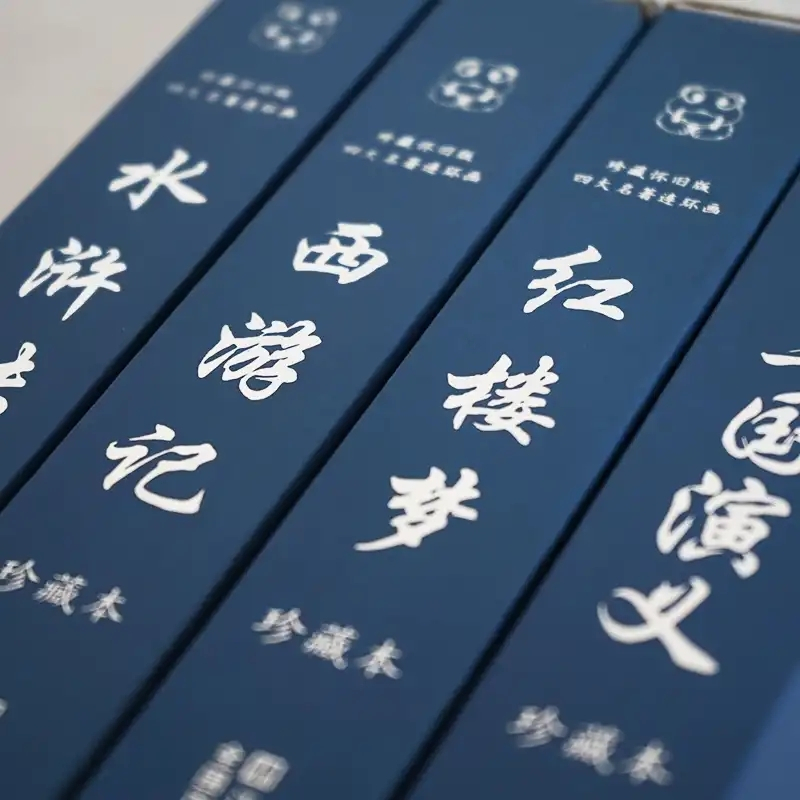 珍藏怀旧版
四大名著连环画
水浒
珍藏怀旧版
四大名著连环画
西游记
珍藏本
珍藏怀旧版
四大名著连环画
红楼梦
珍藏本
国演义
珍藏本